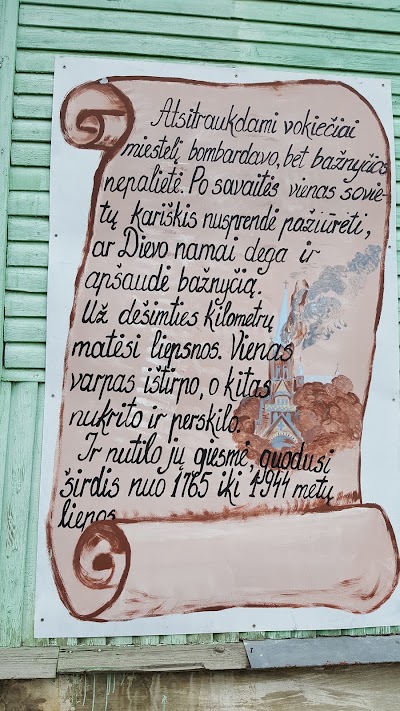 Atsitraukdami vokiečiai
miestelį bombardavo, bet bažnyčios
nepalietė. Po savaitės vienas sovie-
tų kariškis nusprendė pažiūrėti,
ar Dievo namai dega ir
apšaudė bažnyčią.
Už dešimties kilometrų
matėsi liepsnos. Vienas
varpas ištirpo, o kitas
nukrito ir perskilo.
Ir nutilo jų giesmė, guodusi
širdis nuo 1765 iki 1944 metų
liepos